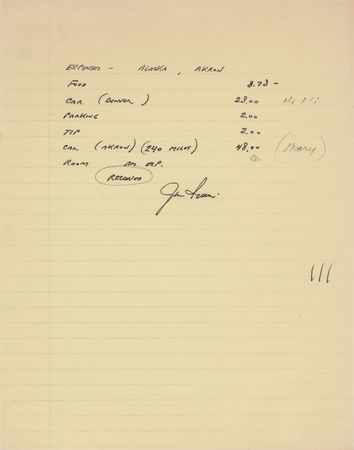 EXPENSES - ALASKA, AKRON
FOOD 8.78 -
CAR (DENVER) 28.00 Hi Fli
PARKING 2.00
TIP 2.00
CAR (AKRON) (240 MILES) 48.00 (Mary)
ROOM AM EXP.